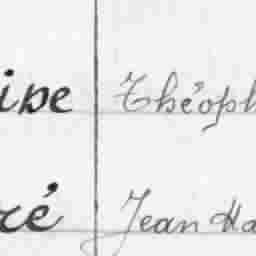 ise Théoph
ré Jean Ha